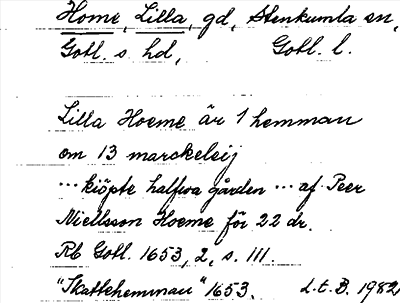 Home, Lilla, gd, Stenkumla sn,
Gotl. s. hd, Gotl. l.
Lilla Hoeme är 1 hemman
om 13 marckeleij
... kiöpte halfwa gården ... af Peer
Niellsson Hoeme för 22 dr.
Rb Gotl. 1653, 2, s. 111.
"Skattehemman" 1653. L.t.B. 1982